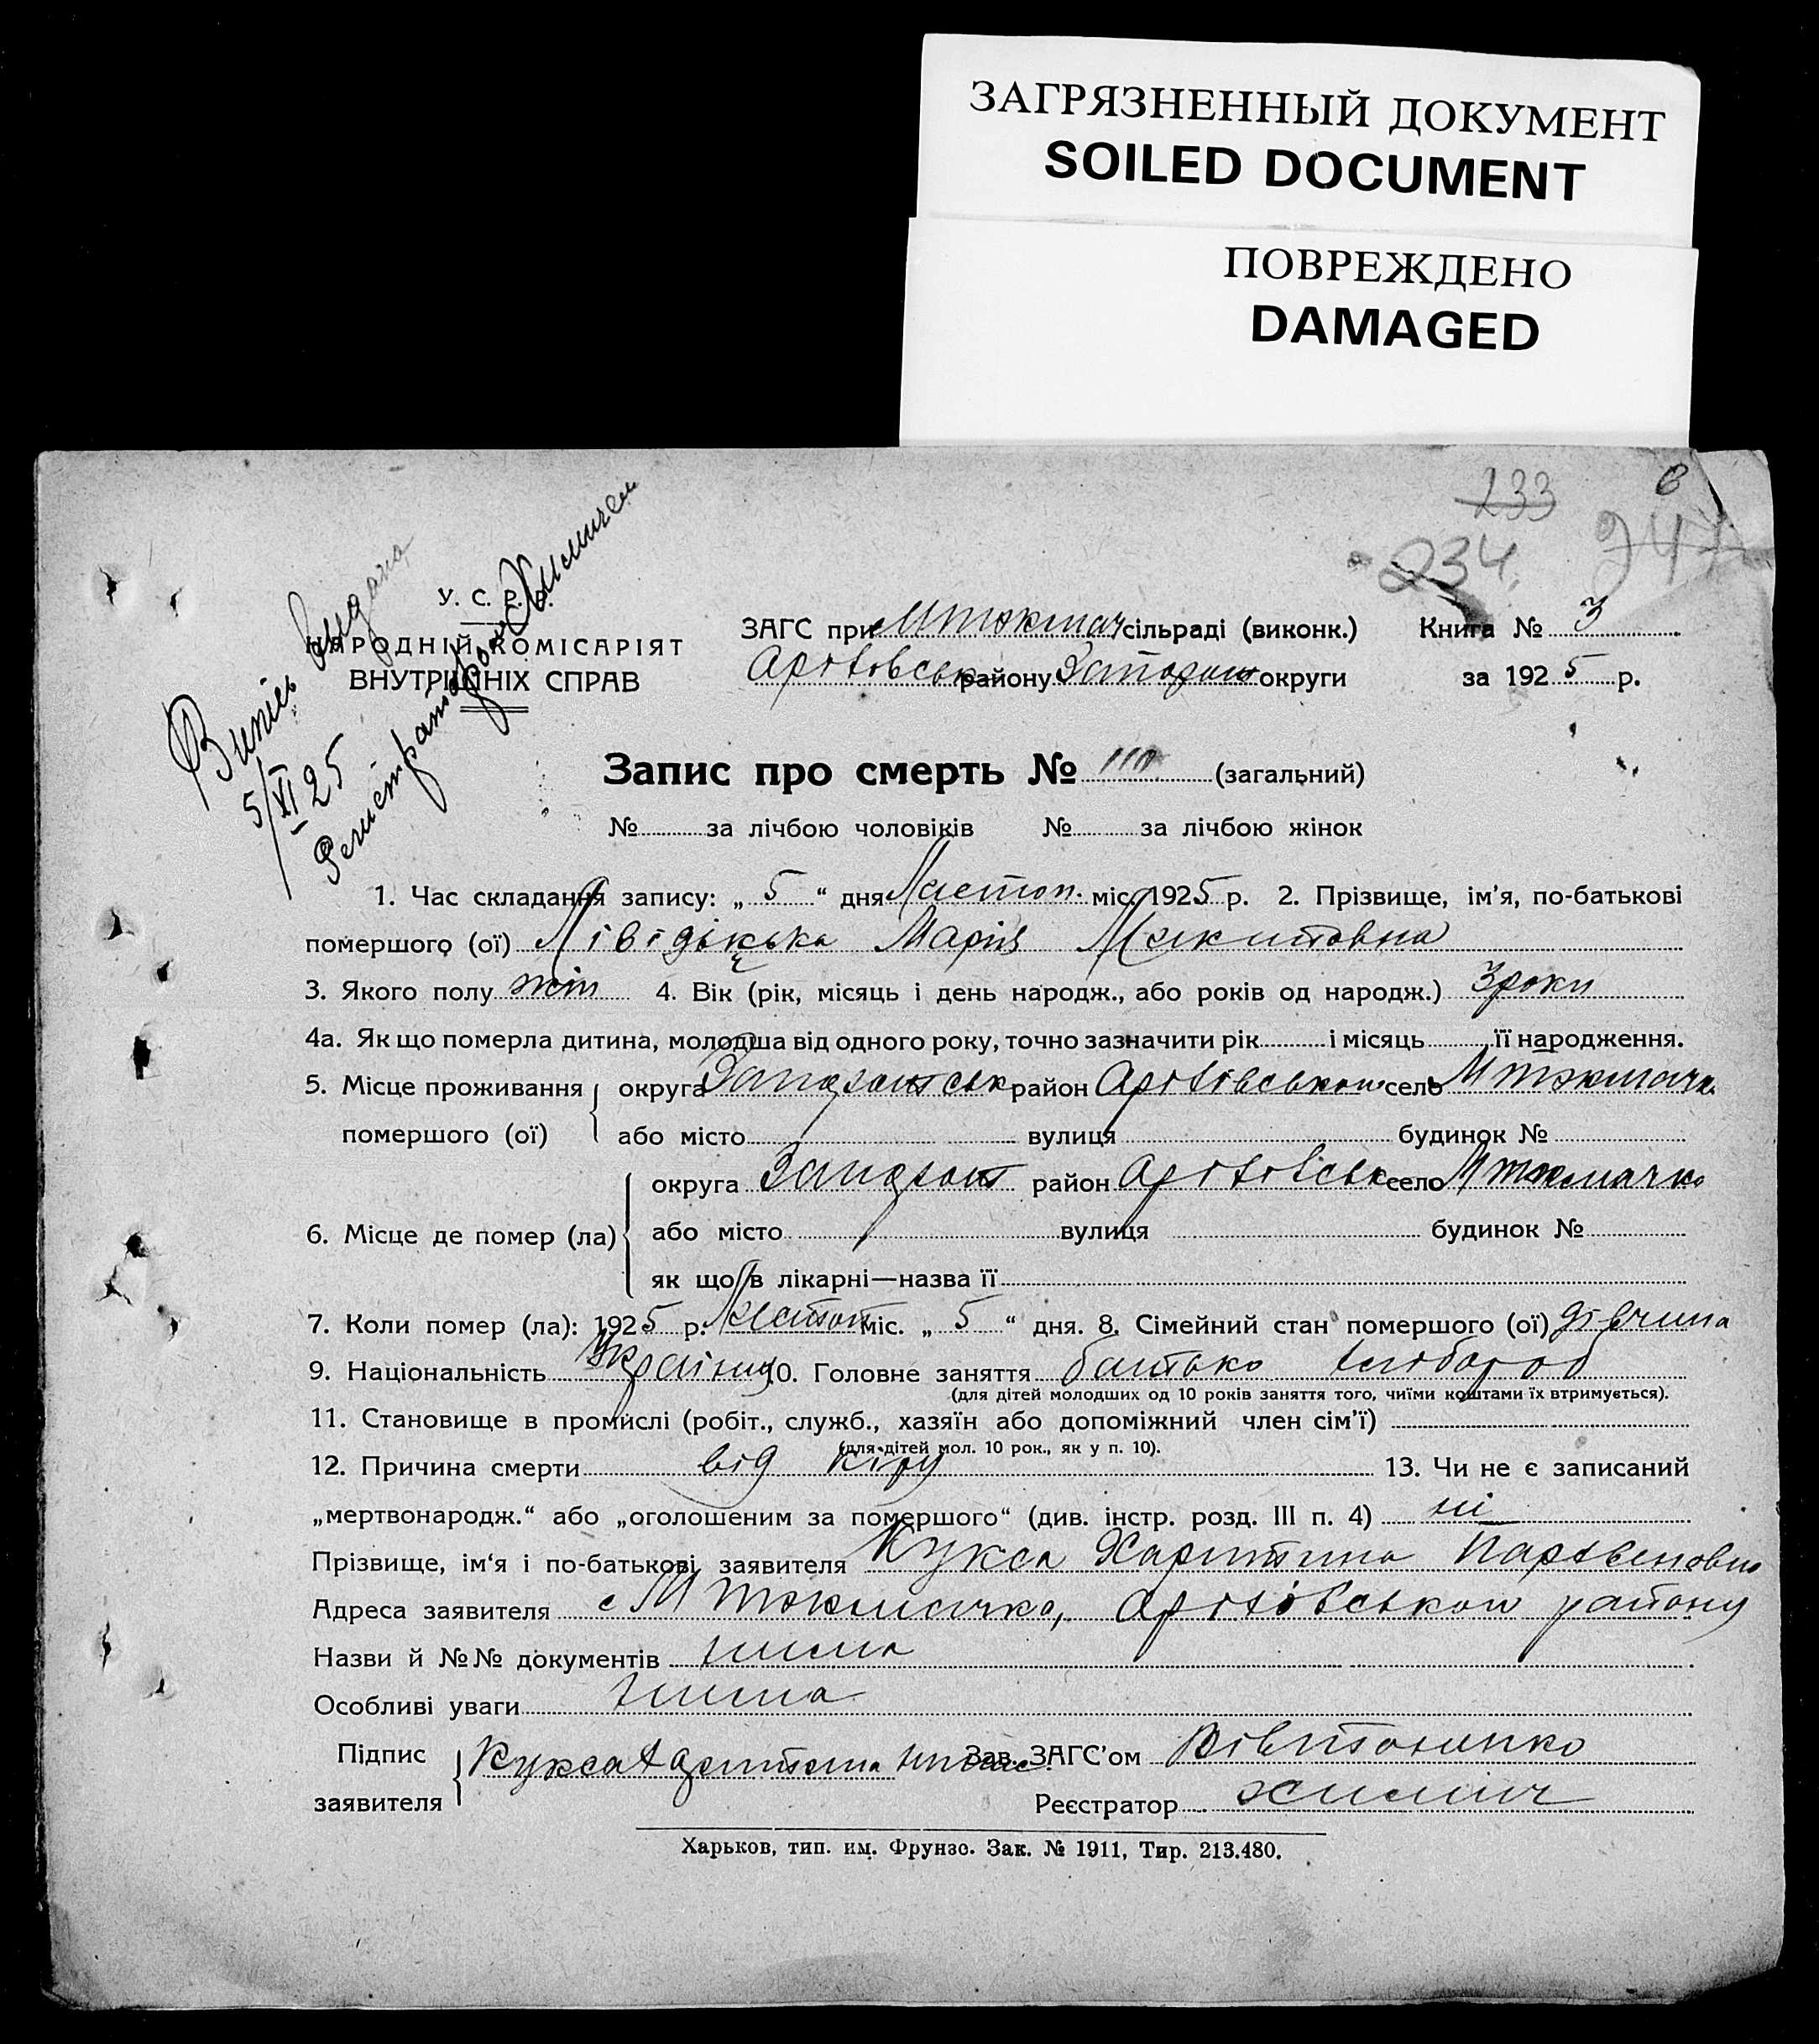 ЗАГРЯЗНЕННЫЙ ДОКУМЕНТ
SOILED DOCUMENT
ПОВРЕЖДЕНО
DAMAGED
233
234
Випись видана
5/XI 25
У. С. Р. Р.
НАРОДНІЙ КОМІСАРІЯТ
ВНУТРІШНІХ СПРАВ
ЗАГС при Мтокмач сільраді (виконк.) Книга № 3
району округи за 1925 р.
Запис про смерть № 110 (загальний)
№ за лічбою чоловіків № за лічбою жінок
1. Час складання запису: „ 5 “ дня Листоп. міс. 1925 р. 2. Прізвище, ім’я, по-батькові
помершого (ої) Марія Микитовна
3. Якого полу жін 4. Вік (рік, місяць і день народж., або років од народж.) 3 роки
4а. Як що померла дитина, молодша від одного року, точно зазначити рік і місяць її народження.
5. Місце проживання округа район село Мтокмачка
помершого (ої) або місто вулиця будинок №
округа район село Мтокмачка
6. Місце де помер (ла) або місто вулиця будинок №
як що в лікарні—назва її
7. Коли помер (ла): 1925 р. Листоп міс. „ 5 “ дня. 8. Сімейний стан помершого (ої) дівчина
9. Національність Україн 10. Головне заняття батько хлібороб
(для дітей молодших од 10 років заняття того, чиїми коштами їх втримується).
11. Становище в промислі (робіт., служб., хазяїн або допоміжний член сім’ї)
(для дітей мол. 10 рок., як у п. 10).
12. Причина смерти від кіру 13. Чи не є записаний
„мертвонародж.“ або „оголошеним за помершого“ (див. інстр. розд. III п. 4) ні
Прізвище, ім‘я і по-батькові заявителя Кукса Харитина Парфеновна
Адреса заявителя с Мтокмачка, району
Назви й №№ документів нима
Особливі уваги нима
Підпис Кукса Зав. ЗАГС’ом
заявителя Реєстратор
Харьков, тип. им. Фрунзе. Зак. № 1911, Тир. 213.480.